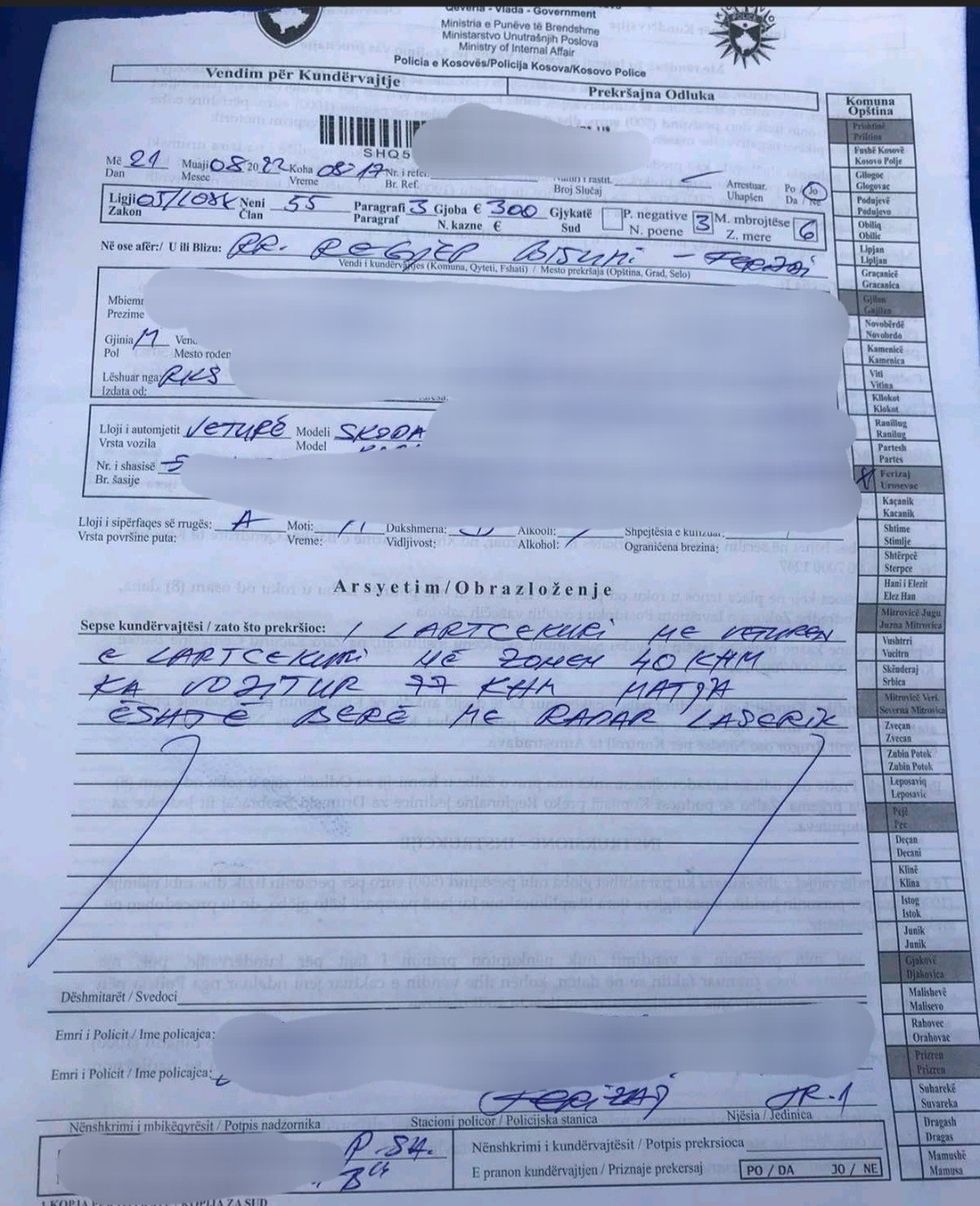 Qeveria - Vlada - Government
Ministria e Punëve të Brendshme
Ministarstvo Unutrašnjih Poslova
Ministry of Internal Affair
Policia e Kosovës/Policija Kosova/Kosovo Police
Vendim për Kundërvajtje
Prekršajna Odluka
Komuna
Opština
SHQ5
Më 21 Muaji 08 2022 Koha 08:17 Nr. i refer.
Dan Mesec Vreme Br. Ref. Broj Slučaj
Arrestuar. Po / Jo
Uhapšen Da / Ne
Ligji 05/L088 Neni 55 Paragrafi 3 Gjoba € 300 Gjykatë P. negative 3 M. mbrojtëse 6
Zakon Član Paragraf N. kazne € Sud N. poene Z. mere
Në ose afër:/ U ili Blizu: RR. REGJEP BISLIMI - FERIZAJ
Vendi i kundërvajtjes (Komuna, Qyteti, Fshati) / Mesto prekršaja (Opština, Grad, Selo)
Mbiemr
Prezime
Gjinia M Vend
Pol Mesto rođen
Lëshuar nga: RKS
Izdata od:
Lloji i automjetit VETURË Modeli SKODA
Vrsta vozila Model
Nr. i shasisë 5
Br. šasije
Lloji i sipërfaqes së rrugës: A Moti: Dukshmëria: Alkooli: / Shpejtësia e kufizuar:
Vrsta površine puta: Vreme: Vidljivost: Alkohol: Ograničena brezina:
Arsyetim/Obrazloženje
Sepse kundërvajtësi / zato što prekršioc: I LARTCEKURI ME VETUREN
E LARTCEKURI NË ZONEN 40 KHM
KA VOZITUR 77 KHM MATJA
ËSHTË BERË ME RADAR LASERIK
Dëshmitarët / Svedoci
Emri i Policit / Ime policajca:
Emri i Policit / Ime policajca:
FERIZAJ TR-1
Nënshkrimi i mbikëqyrësit / Potpis nadzornika Stacioni policor / Policijska stanica Njësia / Jedinica
Nënshkrimi i kundërvajtësit / Potpis prekrsioca
E pranon kundërvajtjen / Priznaje prekersaj PO / DA JO / NE
1 KOPJA
Prishtinë
Priština
Fushë Kosovë
Kosovo Polje
Gllogoc
Glogovac
Podujevë
Podujevo
Obiliq
Obilic
Lipjan
Lipljan
Graçanicë
Gracanica
Gjilan
Gnjilan
Novobërdë
Novobrdo
Kamenicë
Kamenica
Viti
Vitina
Kllokot
Klokot
Ranillug
Ranilug
Partesh
Partes
Ferizaj
Urosevac
Kaçanik
Kacanik
Shtime
Stimlje
Shtërpcë
Sterpce
Hani i Elezit
Elez Han
Mitrovicë Jugu
Juzna Mitrovica
Vushtrri
Vucitrn
Skënderaj
Srbica
Mitrovicë Veri.
Severna Mitrovica
Zveçan
Zvecan
Zubin Potok
Zubin Potok
Leposaviq
Leposavic
Pejë
Pec
Deçan
Decani
Klinë
Klina
Istog
Istok
Junik
Junik
Gjakovë
Djakovica
Malishevë
Malisevo
Rahovec
Orahovac
Prizren
Prizren
Suharekë
Suvareka
Dragash
Dragas
Mamushë
Mamusa